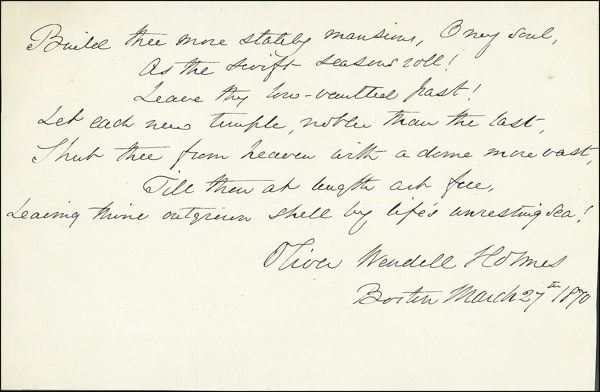 Build thee more stately mansions, O my soul,
As the swift seasons roll!
Leave thy low-vaulted past!
Let each new temple, nobler than the last,
Shut thee from heaven with a dome more vast,
Till thou at length art free,
Leaving thine outgrown shell by life's unresting sea!
Oliver Wendell Holmes
Boston March 27th 1870